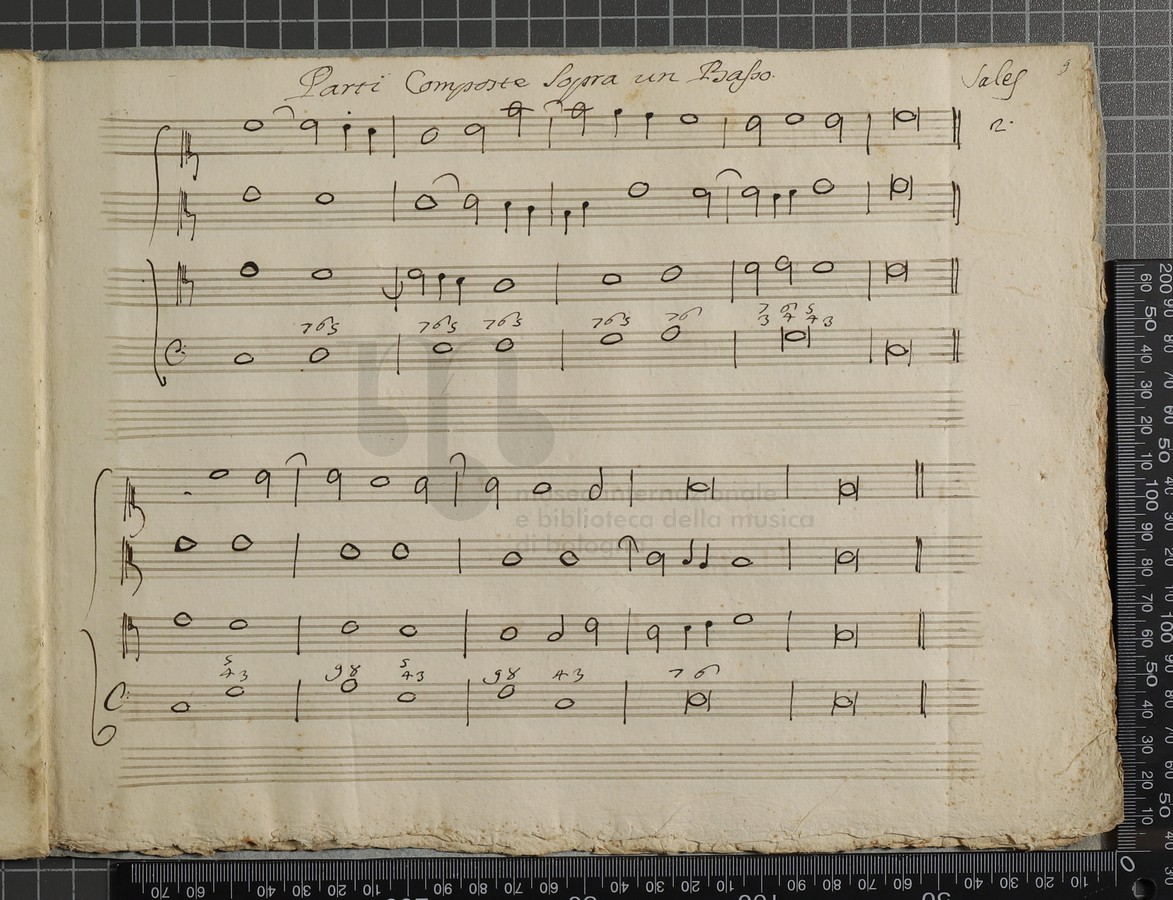 Parti Composte Sopra un Basso.
Sales
2.
7 6 5
7 6 5
7 6 5
7 6 5
7 6
7 6 5
3 4 4 3
museo internazionale
e biblioteca della musica
di bologna
5
4 3
9 8
5
4 3
9 8
4 3
7 6